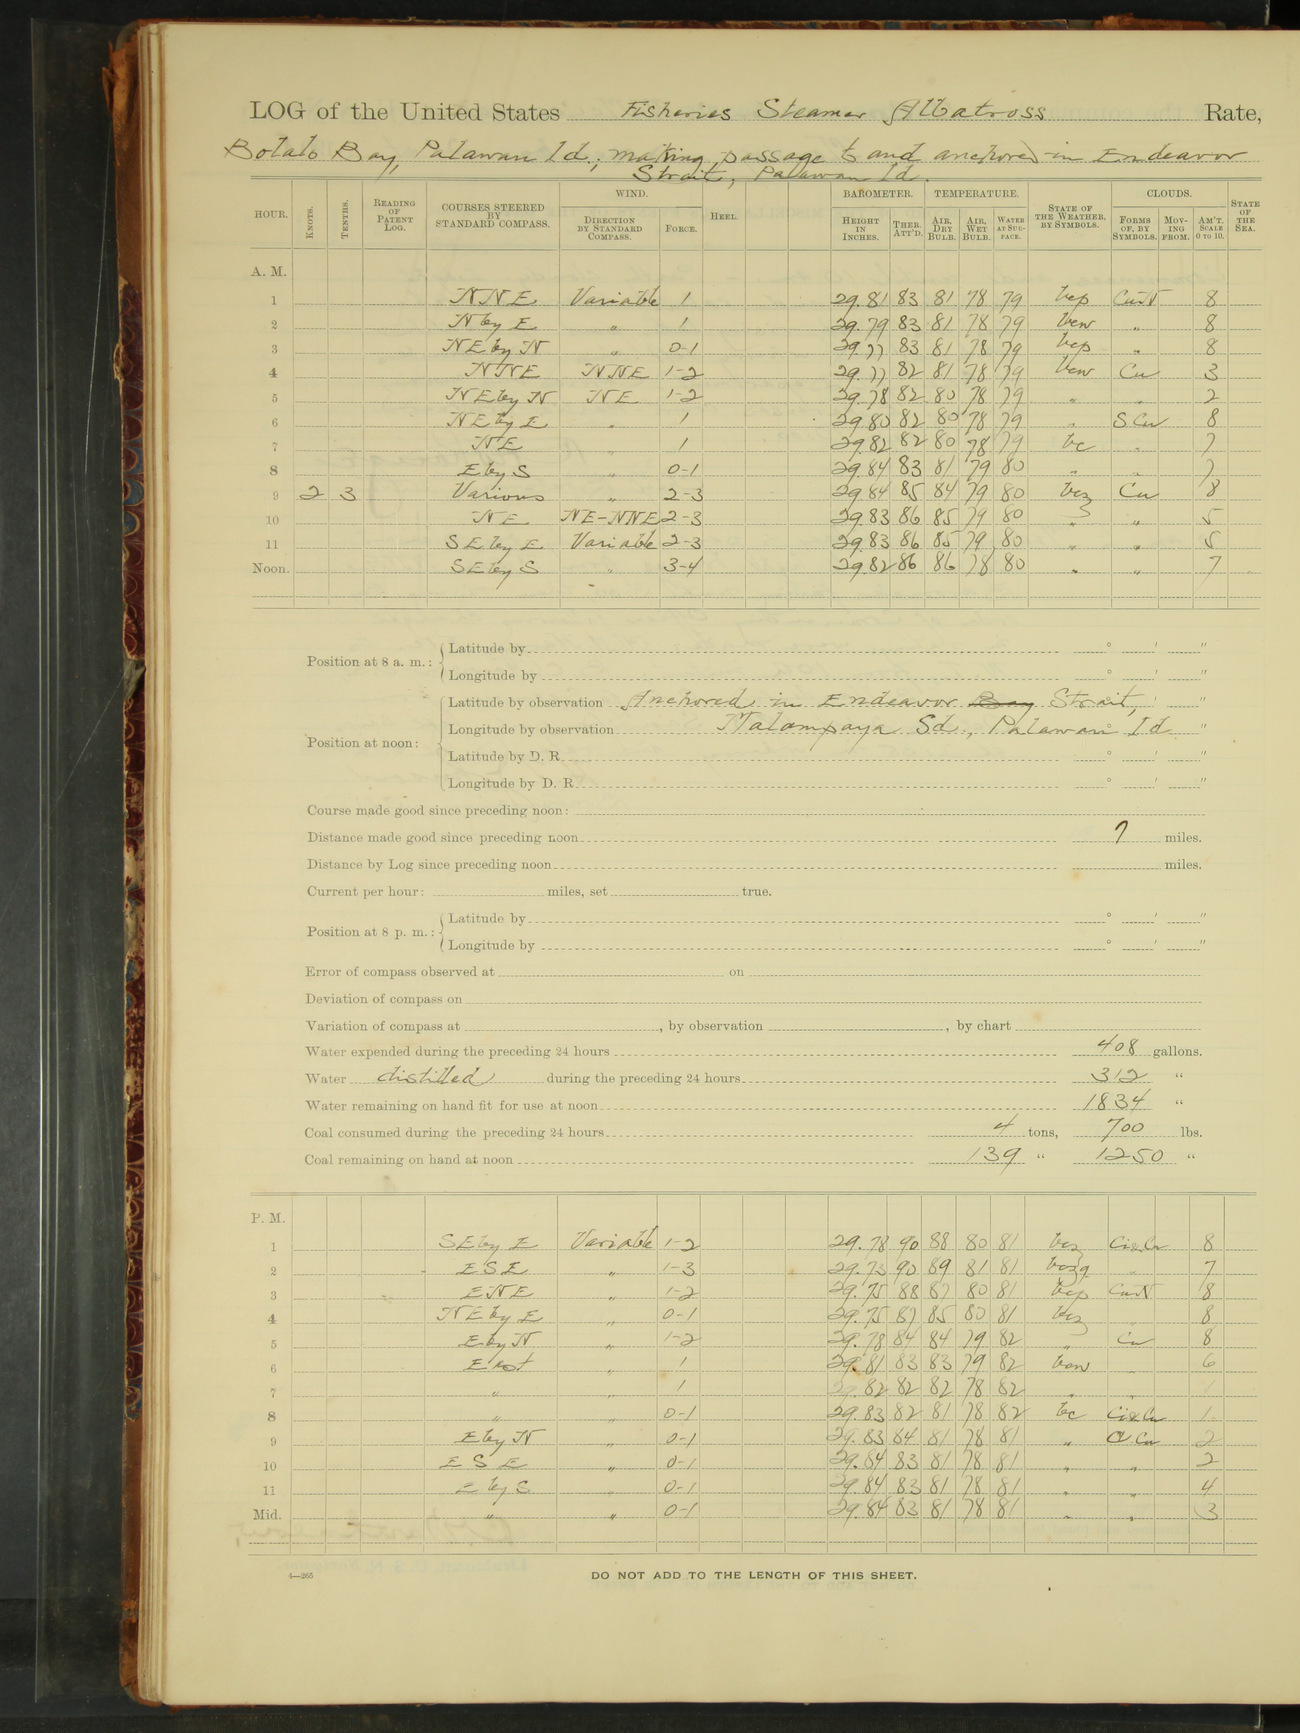 LOG of the United States Fisheries Steamer Albatross Rate,
Bolalo Bay, Palawan Id., making passage to and anchored in Endeavor
Strait, Palawan Id.
HOUR. KNOTS. TENTHS. READING OF PATENT LOG. COURSES STEERED BY STANDARD COMPASS. WIND. DIRECTION BY STANDARD COMPASS. FORCE. HEEL. BAROMETER. HEIGHT IN INCHES. THER. ATT'D. TEMPERATURE. AIR, DRY BULB. AIR, WET BULB. WATER AT SURFACE. STATE OF THE WEATHER, BY SYMBOLS. CLOUDS. FORMS OF, BY SYMBOLS. MOVING FROM. AM'T. SCALE 0 TO 10. STATE OF THE SEA.
A. M.
1 NNE Variable 1 29.81 83 81 78 79 bcp CuN 8
2 N by E " 1 29.79 83 81 78 79 bcw " 8
3 NE by N " 0-1 29.77 83 81 78 79 bcp " 8
4 NNE NNE 1-2 29.77 82 81 78 79 bcw Cu 3
5 NE by N NE 1-2 29.78 82 80 78 79 " " 2
6 NE by E " 1 29.80 82 80 78 79 " S.Cu 8
7 NE " 1 29.82 82 80 78 79 bc " 7
8 E by S " 0-1 29.84 83 81 79 80 " " 7
9 2 3 Various " 2-3 29.84 85 84 79 80 bcz Cu 8
10 NE NE-NNE 2-3 29.83 86 85 79 80 " " 5
11 SE by E Variable 2-3 29.83 86 85 79 80 " " 5
Noon. SE by S " 3-4 29.82 86 86 78 80 " " 7
Position at 8 a. m.: Latitude by ° ′ ″
Longitude by ° ′ ″
Latitude by observation Anchored in Endeavor Bay Strait, ′ ″
Longitude by observation Malampaya Sd., Palawan Id ″
Position at noon:
Latitude by D. R. ° ′ ″
Longitude by D. R. ° ′ ″
Course made good since preceding noon:
Distance made good since preceding noon 7 miles.
Distance by Log since preceding noon miles.
Current per hour: miles, set true.
Position at 8 p. m.: Latitude by ° ′ ″
Longitude by ° ′ ″
Error of compass observed at on
Deviation of compass on
Variation of compass at , by observation , by chart
Water expended during the preceding 24 hours 408 gallons.
Water distilled during the preceding 24 hours 312 "
Water remaining on hand fit for use at noon 1834 "
Coal consumed during the preceding 24 hours 4 tons, 700 lbs.
Coal remaining on hand at noon 139 " 1250 "
P. M.
1 SE by E Variable 1-2 29.78 90 88 80 81 bcz Ci&Cu 8
2 ESE " 1-3 29.73 90 89 81 81 7
3 ENE " 1-2 29.75 88 87 80 81 bcp CuN 8
4 NE by E " 0-1 29.75 87 85 80 81 bcz " 8
5 E by N " 1-2 29.78 84 84 79 82 " Cu 8
6 East " 1 29.81 83 83 79 82 6
7 " " 1 29.82 82 82 78 82 " " 1
8 " " 0-1 29.83 82 81 78 82 bc Ci&Cu 1
9 E by N " 0-1 29.83 84 81 78 81 " Cu 2
10 ESE " 0-1 29.84 83 81 78 81 " " 2
11 E by S " 0-1 29.84 83 81 78 81 " " 4
Mid. " " 0-1 29.84 83 81 78 81 " " 3
4—265
DO NOT ADD TO THE LENGTH OF THIS SHEET.